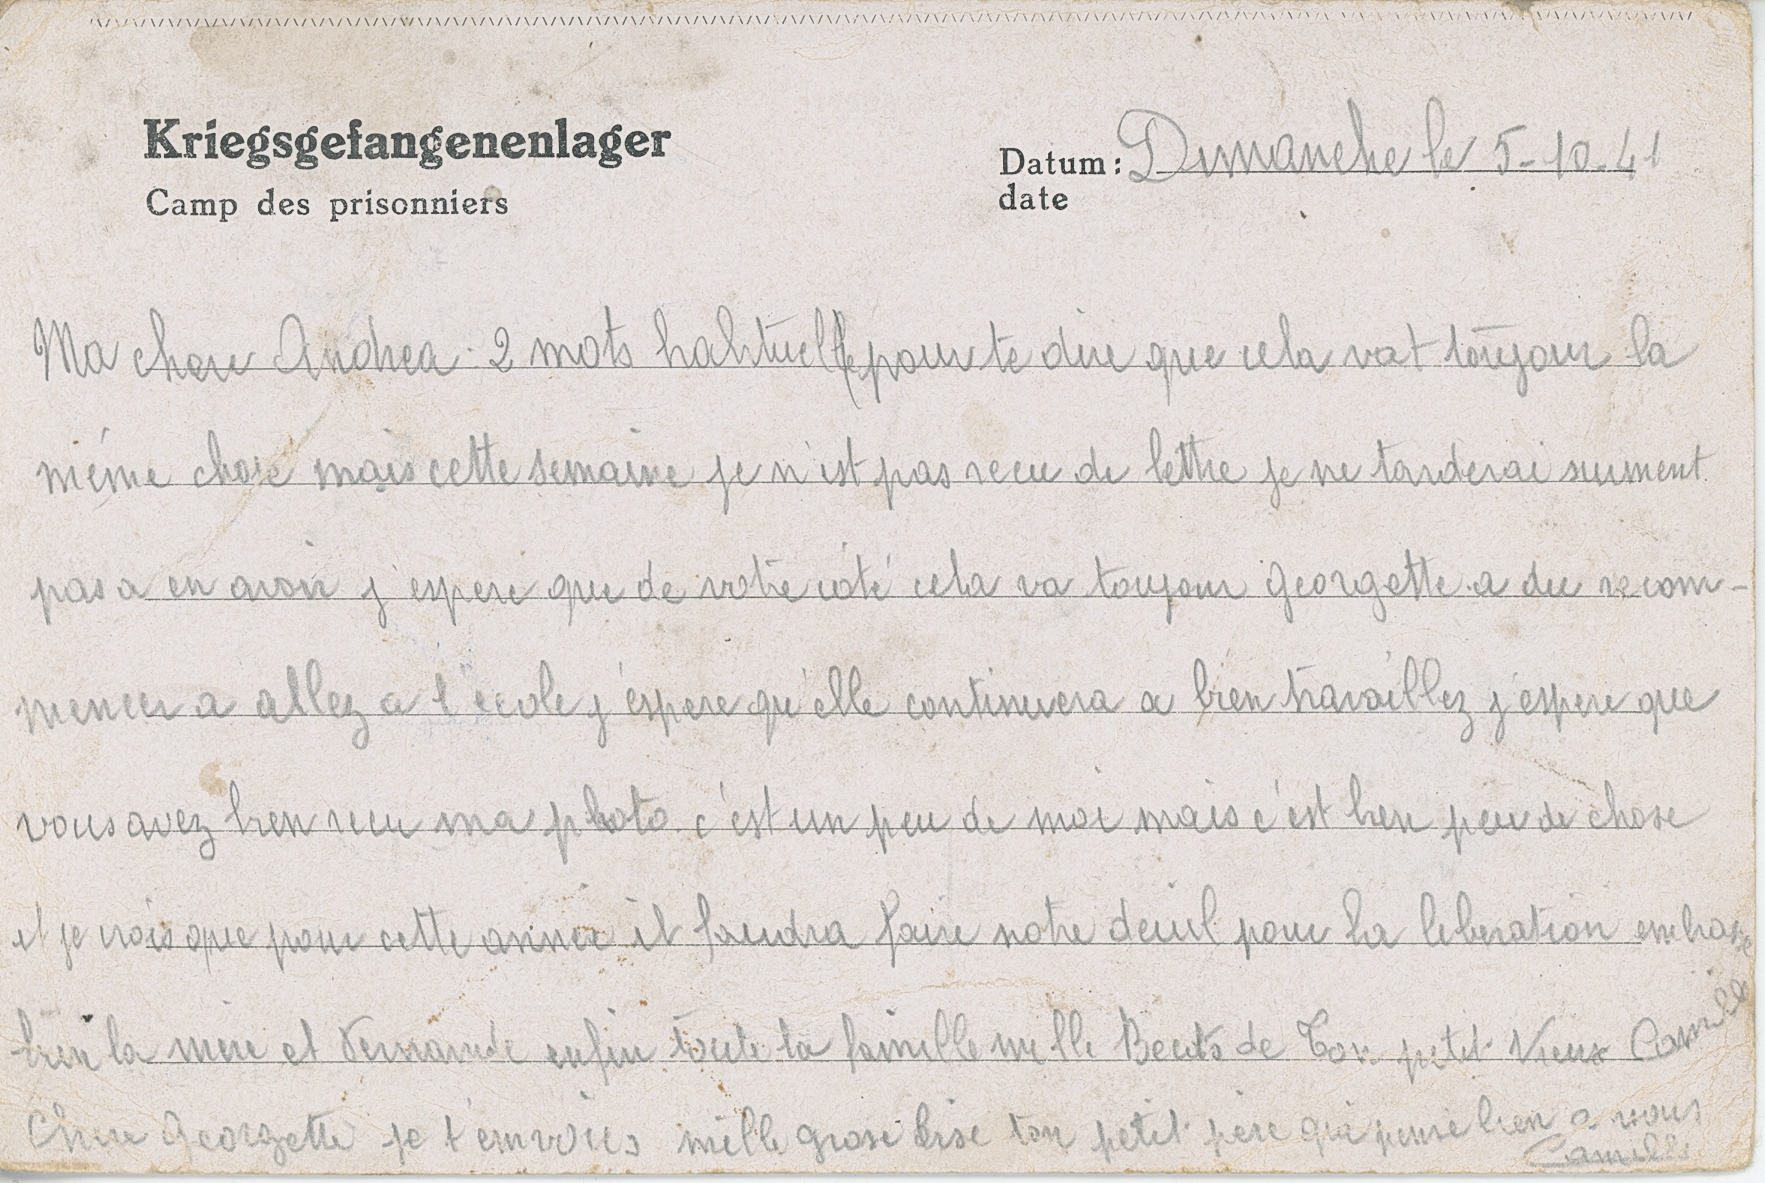 Kriegsgefangenenlager
Camp des prisonniers
Datum: Dimanche le 5-10-41
date
Ma chere Andrea. 2 mots habituelle pour te dire que cela vat toujour la
même chose mais cette semaine je n'est pas recu de lettre je ne tarderai surment
pas a en avoir j'espere que de votre coté cela va toujour Georgette a du recom-
mencer a allez a l'école j'espere qu'elle continuera a bien travaillez j'espere que
vous avez bien recu ma photo c'est un peu de moi mais c'est bien peu de chose
et je crois que pour cette année il faudra faire notre deuil pour la liberation embrasse
bien la mere et Fernande enfin toute la famille mille Becots de Ton petit Vieux Camille
Chere Georgette je t'envoies mille grose bise ton petit père qui pense bien a vous
Camille